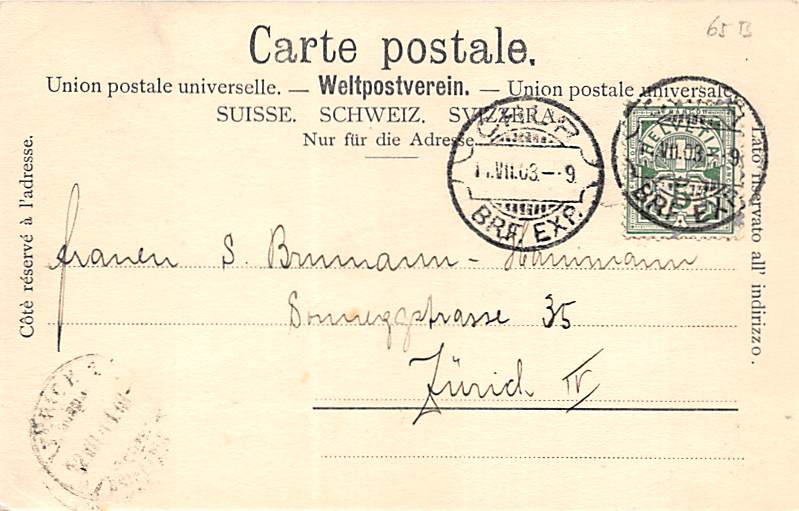 65 B
Carte postale.
Union postale universelle. — Weltpostverein. — Union postale universale
SUISSE. SCHWEIZ. SVIZZERA.
Nur für die Adresse.
Côté réservé à l'adresse.
Lato riservato all' indirizzo.
CHUR
VII.03.—9
BRF. EXP.
HELVETIA
5
VII.03.—9
BRF. EXP.
Frauen S. Brunmann-Hanimann
Sonneggstrasse 35
Zürich IV